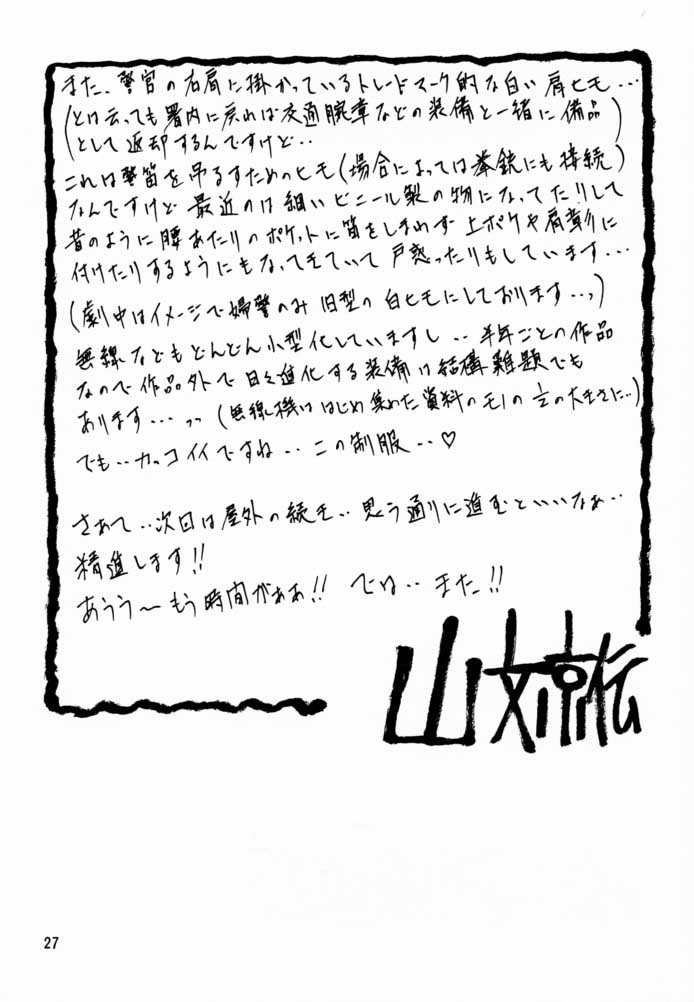 また、警官の右肩に掛かっているトレードマーク的な白い肩ヒモ…
(とは云っても署内に戻れば交通腕章などの装備と一緒に備品
として返却するんですけど‥)
これは警笛を吊るすためのヒモ(場合によっては拳銃にも接続)
なんですけど最近のは細いビニール製の物になってたりして
昔のように腰あたりのポケットに笛をしまわず上ポケや肩章に
付けたりするようにもなってきていて戸惑ったりもしています…
(劇中はイメージで婦警のみ旧型の白ヒモにしております‥)
無線などもどんどん小型化していますし‥半年ごとの作品
なので作品外で日々進化する装備は結構難題でも
あります…(無線機ははじめ集めた資料のモノの½の大きさに‥)
でも‥カッコイイですね‥この制服‥♡
さあて‥次回は屋外の続き‥思う通りに進むといいなぁ‥
精進します!!
あうう〜もう時間がああ!! では‥また!!
山文京伝
27